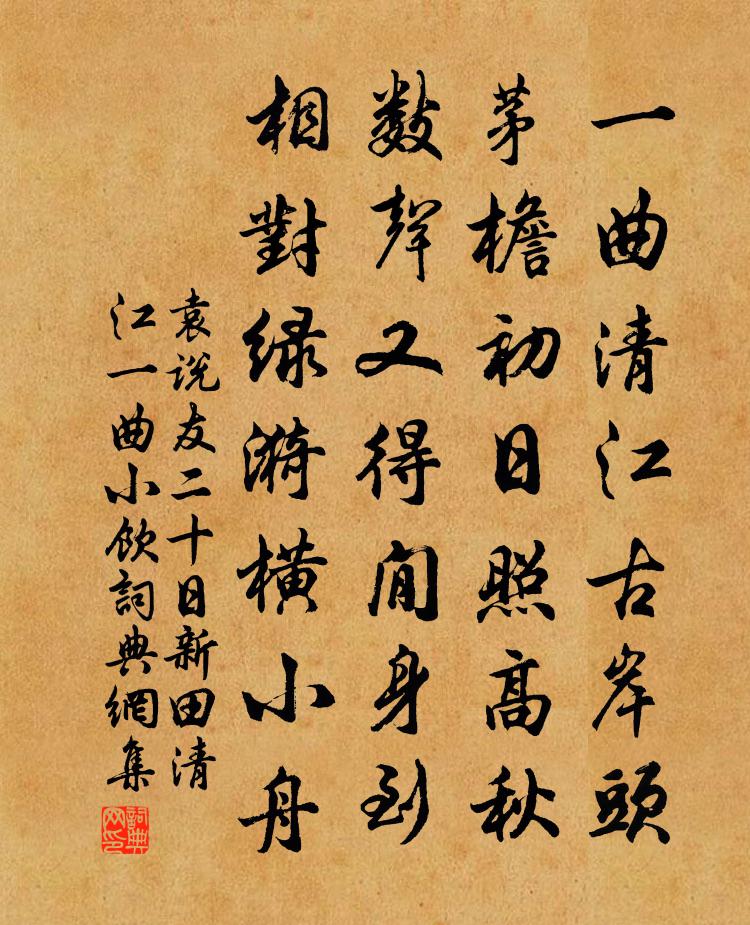 一曲清江古岸頭
茅檐初日照高秋
数聲又得閒身到
相對緑漪横小舟
袁説友二十日新田清
江一曲小飲詞典網集
詞典网印